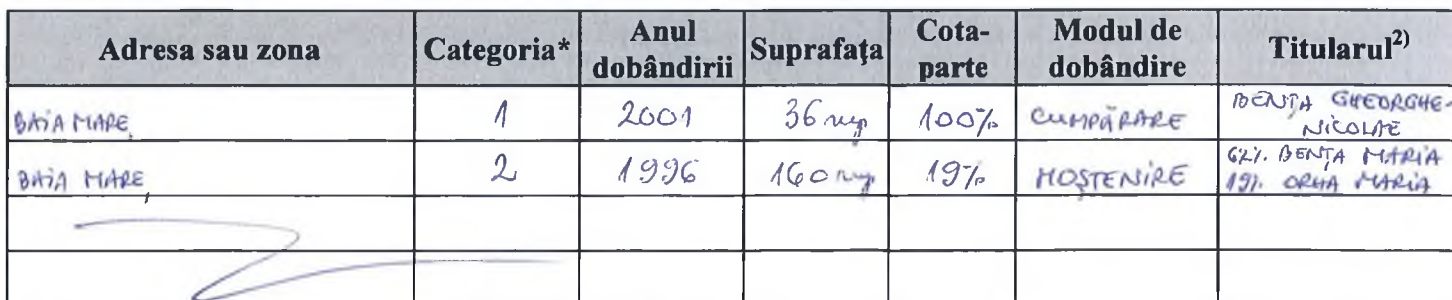 Adresa sau zona Categoria* Anul dobândirii Suprafaţa Cota-parte Modul de dobândire Titularul2)
BAIA MARE 1 2001 36 mp 100% CUMPĂRARE BENȚA GHEORGHE-NICOLAE
BAIA MARE 2 1996 160 mp 19% MOȘTENIRE 62% BENȚA MARIA
19% ORHA MARIA